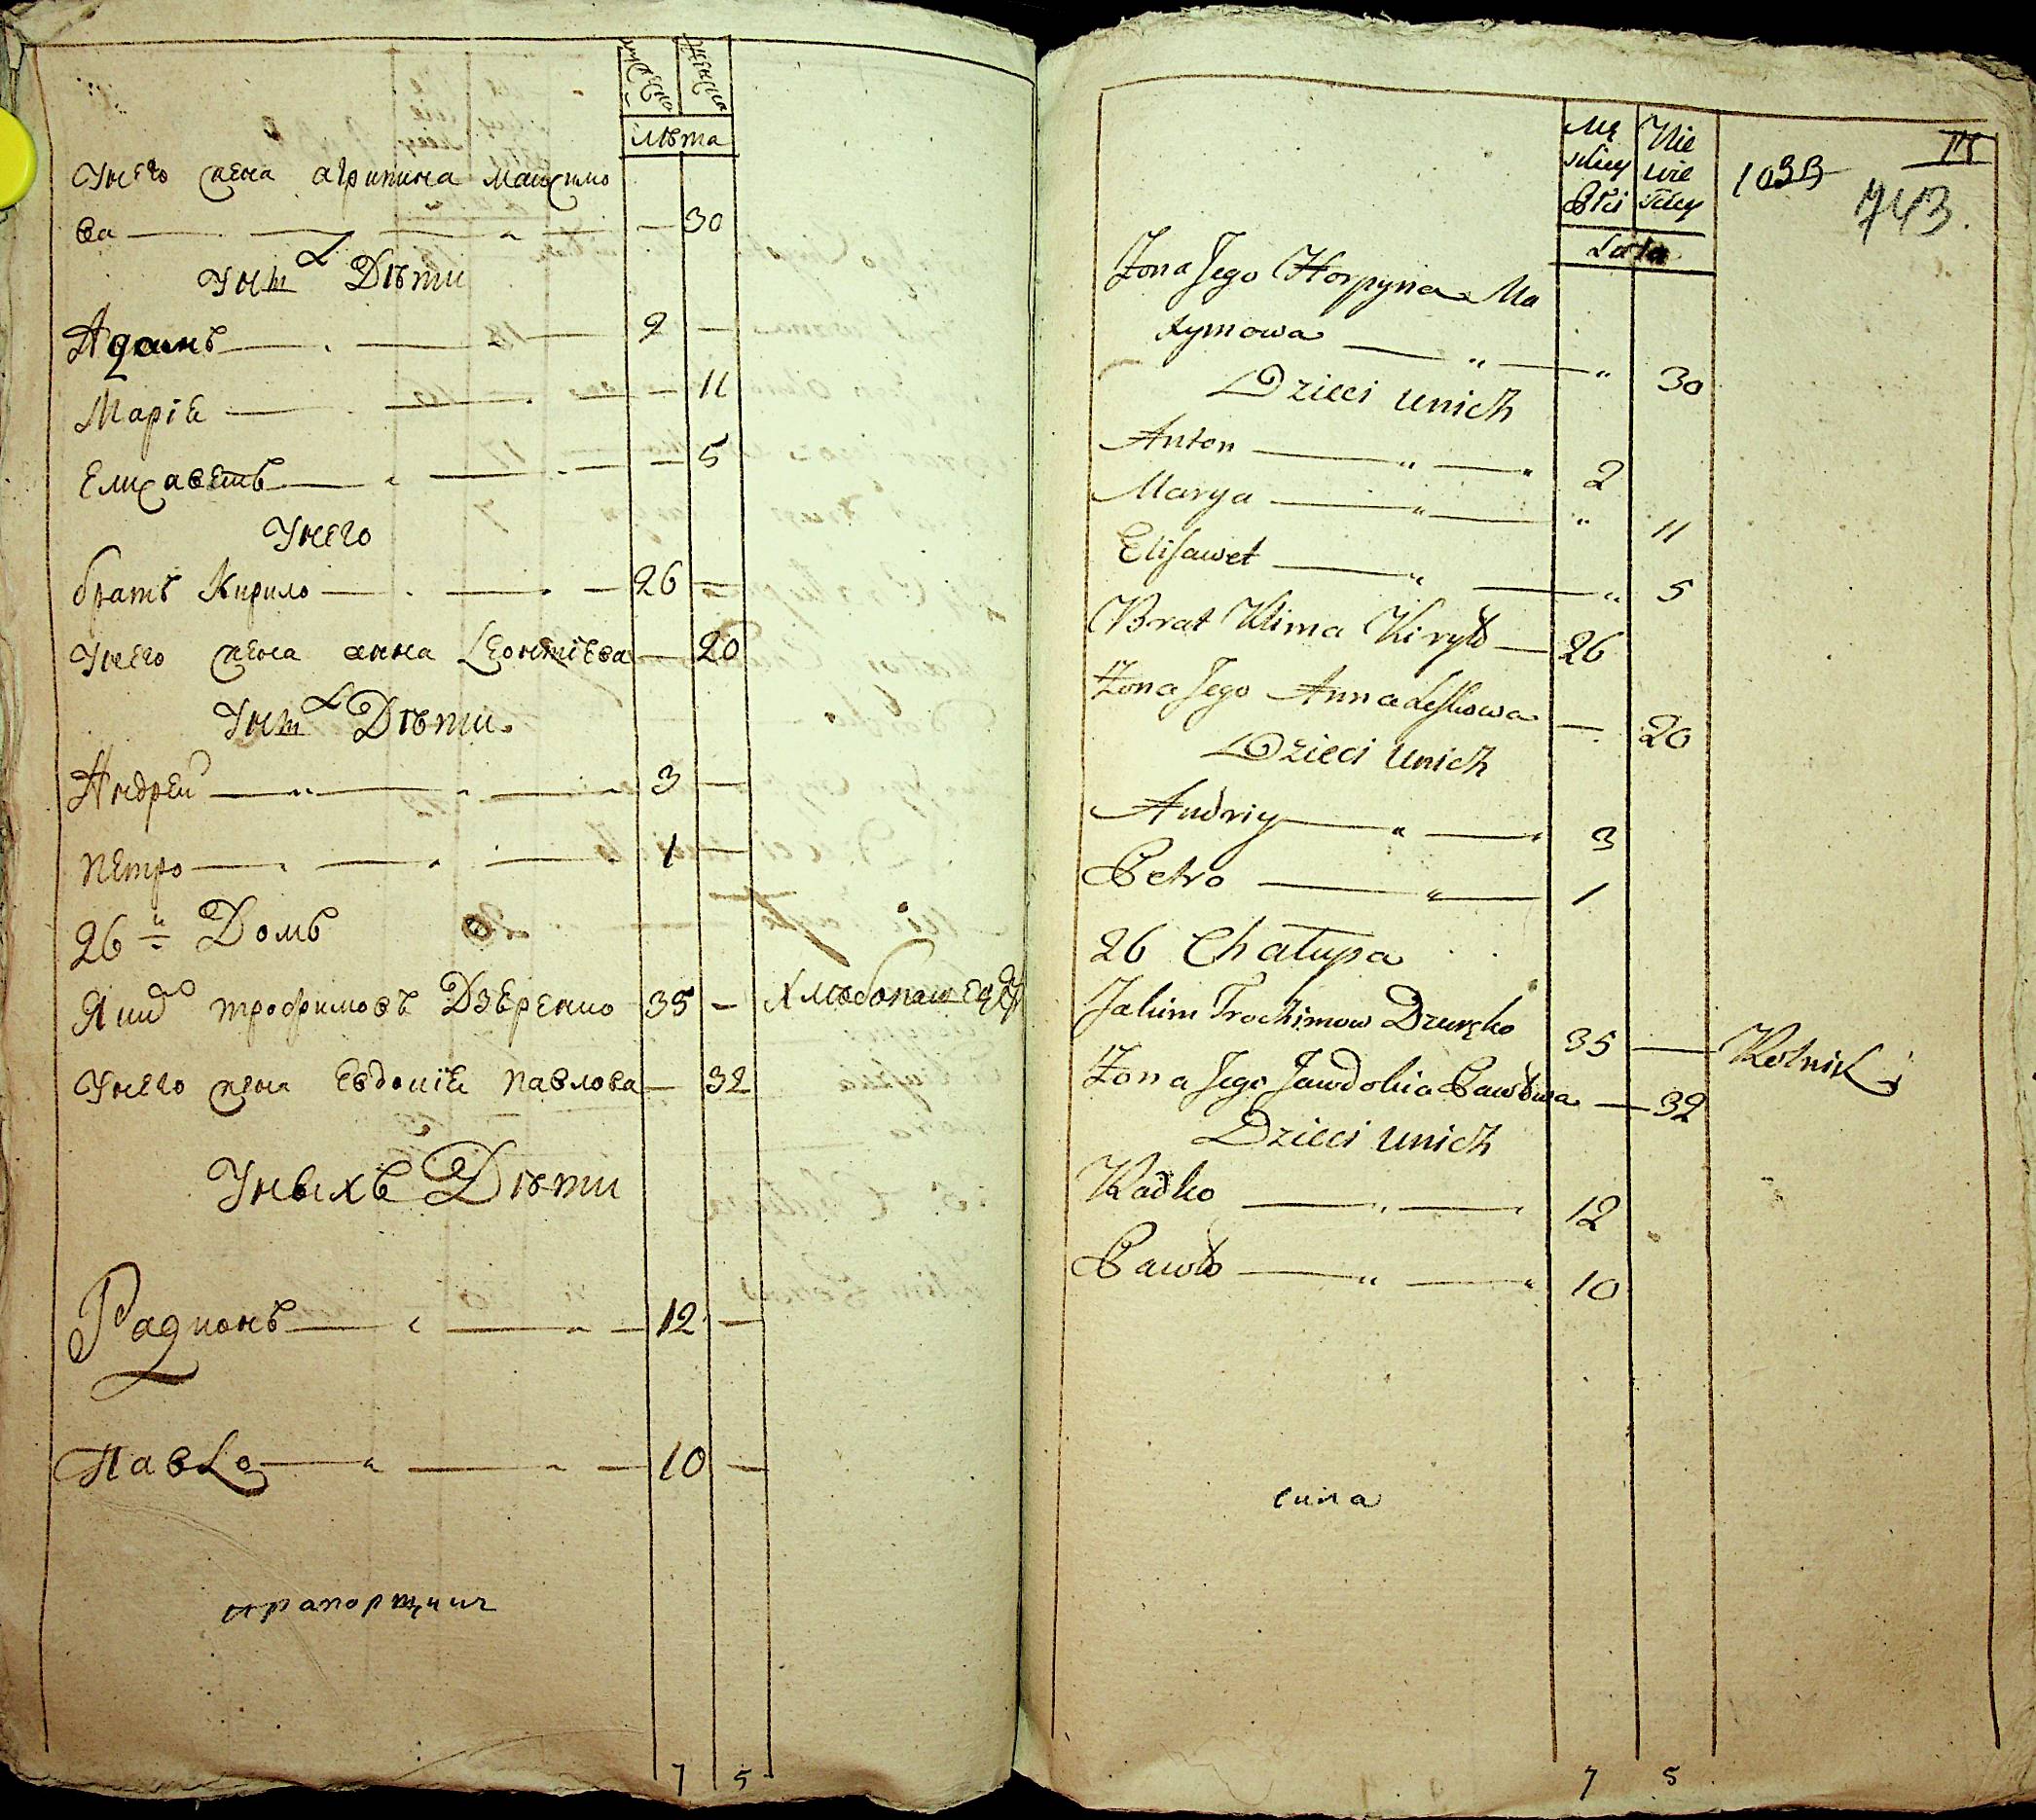 мужеска женска
лѣта
Унего жена агрипина Максимо
ва — — — — 30
Унихъ Дѣти
Адамъ — — 2 —
Маріѣ — — — 11
Елисаветъ — — — 5
Унего
братъ Кирило — — 26 —
Унего жена анна Леонтіева — 20
Унихъ Дѣти
Андрей — — 3 —
Петро — — 1 —
26й Домъ
Яким трофимовъ Дзѣренко 35 — Хлѣбопашецъ
Унего жена Евдокіѣ Павлова — 32
Уныхъ Дѣти
Радионъ — — 12 —
Павло — — 10 —
прапорщикъ
7 5
Męskiey Płci Niewieściey
Lata
1033
743.
Żona Jego Horpyna Ma
xymowa — — 30
Dzieci unich
Anton — — 2
Marya — — 11
Elisawet — — 5
Brat Klima Kiryło — 26
Żona Jego Anna Leskowa — 20
Dzieci unich
Andriy — — 3
Petro — — 1
26 Chałupa
Jakim Trochimow Dzureko 35 — Rolnik
Żona Jego Jawdokia Pawłowa — 32
Dzieci unich
Radko — — 12
Pawło — — 10
сила
7 5